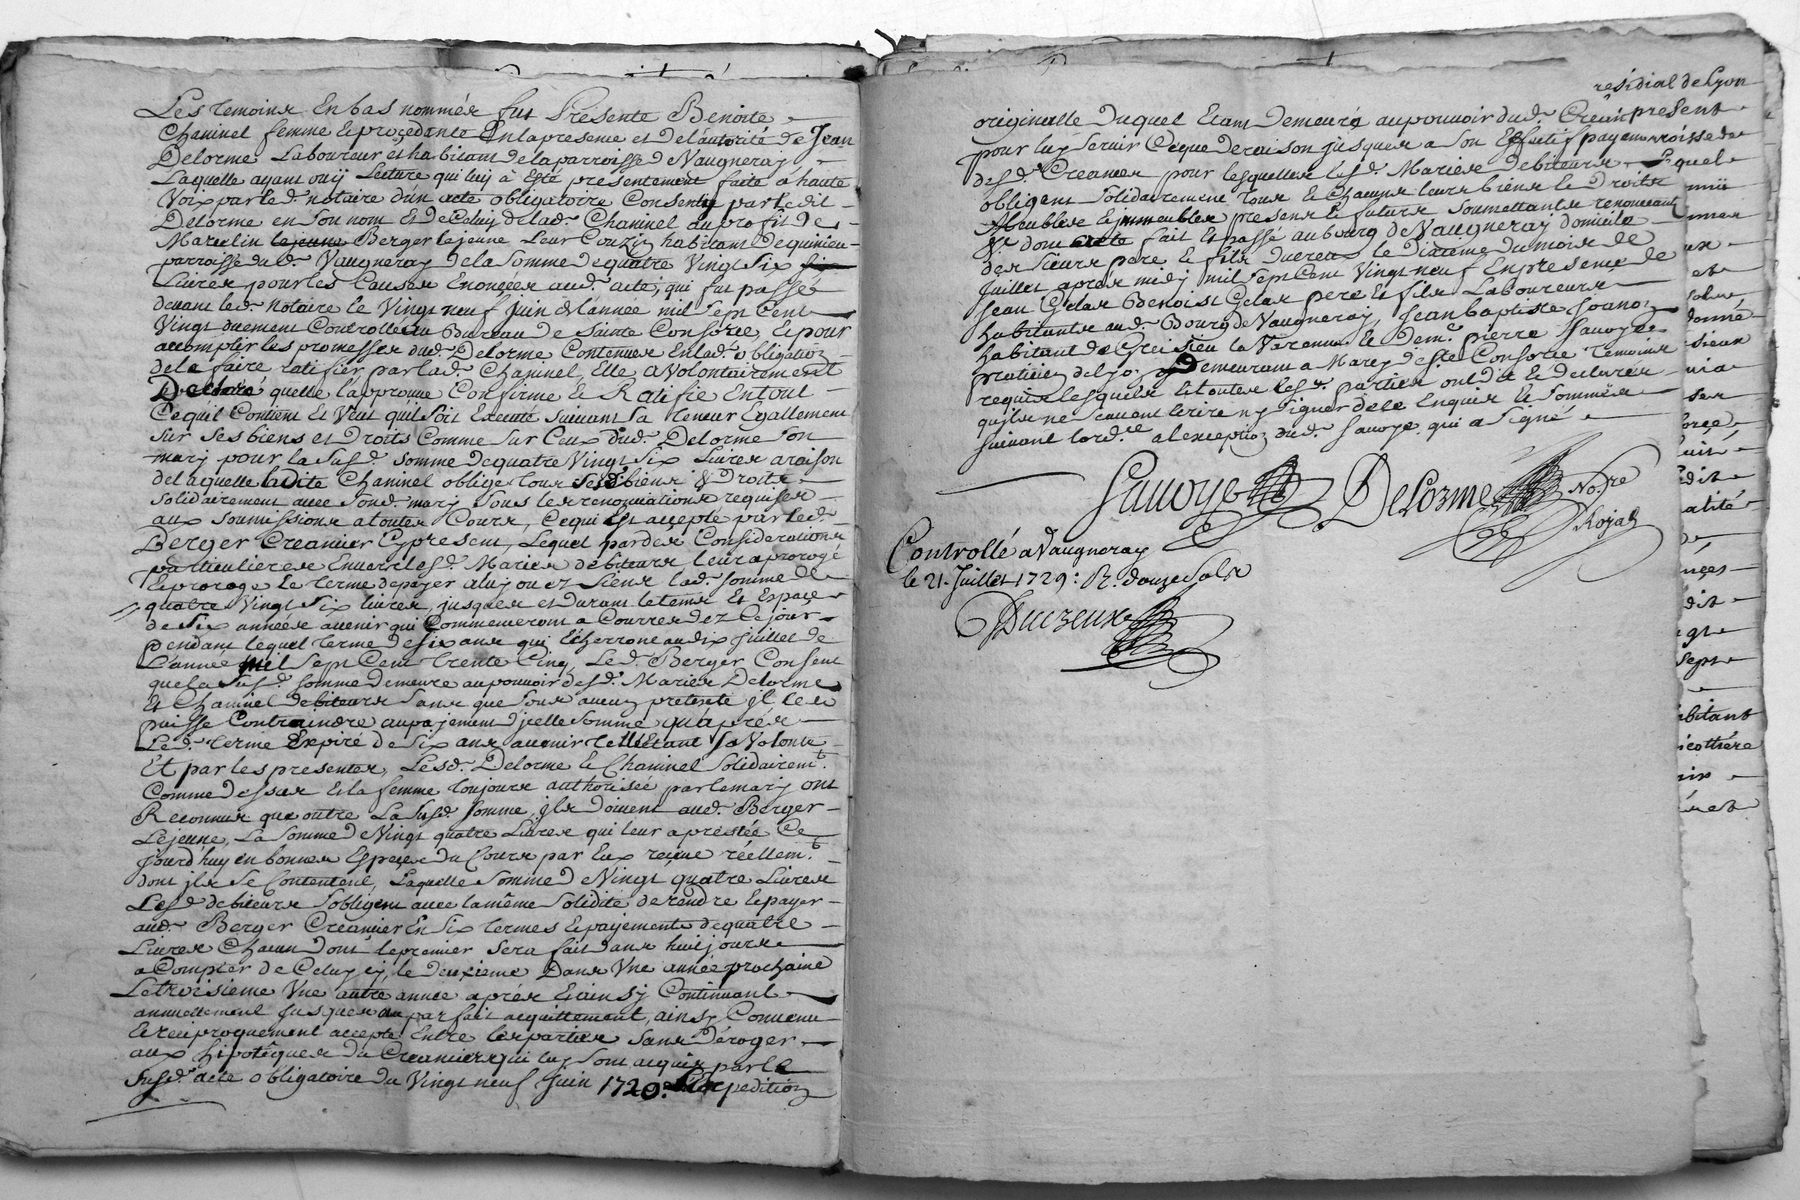 Les temoins En bas nommés fut Présente Benoite
Chaninel femme le procedante En la presence et de lautorité de Jean
Delorme Laboureur et habitant de la parroisse de Vaugneray
Laquelle ayant ouÿ Lecture qui luÿ à Esté présentement faite à haute
Voix par le d. notaire d'un acte obligatoire Consenty par le dit
Delorme en Son nom Et de Celuy de lad. Chaninel au profit de
Marcelin lejeune Berger lejeune Leur Couzin habitant de quinieu
parroisse du d. Vaugneray de la Somme de quatre Vingt Six six
Livres pour les Causes Enoncées aud. acte, qui fut passé
devant led. notaire le Vingt neuf Juin de l'année mil Sept Cent
Vingt duement Controllé au Bureau de Sainte Consorce, Et pour
accomplir les promesses dud. Delorme Contenues En lad. obligation
de la faire ratifier par lad. Chaninel, Elle a Volontairement
Declaré quelle l'approuve Confirme Et Ratifie En tout
Ce quil Contient Et Veut quil Soit Executé Suivant Sa teneur Egallement
Sur Ses biens et Droits Comme Sur Ceux dud. Delorme Son
mary pour la Susd. Somme de quatre Vingt Six Livres a raison
de laquelle ladite Chaninel oblige tous Sesd. biens & Droits
Solidairement avec Sond. mary Sous les renonciations requises
aux Soumissions a toutes Cours, Ce qui Est accepté par led.
Berger Creancier Cy present, Lequel par des Considerations
particulieres Envers lesd. Mariés debiteurs leur a prorogé
Et proroge le terme de payer a luy ou ez Siens lad. Somme de
quatre Vingt Six livres, jusques et Durant le tems Et Espace
de Six années avenir qui Commenceront a Courre dez Ce jour
pendant lequel terme de six ans qui Echerront au dix Juillet de
L'année mil Sept Cent trente Cinq, Led. Berger Consent
que la Susd. Somme Demeure au pouvoir desd. Mariés Delorme
Et Chaninel debiteurs Sans que Sous aucun pretexte jl les
puisse Contraindre au pajement d'jcelle Somme qu'aprés
Led. terme Expiré de Six ans avenir telle Etant Sa Volonté
Et par les presentes, Lesd. Delorme & Chaninel Solidairemt.
Comme dessus Et la femme toujours authorisée par le mary ont
Reconnus que outre La Susd. Somme jls doivent aud. Berger
Lejeune, La Somme de Vingt quatre Livres qui leur a prestée Ce
jourd'huy en bonnes Especes du Cours par Eux reçue réellemt.
dont jls Se Contentent, Laquelle Somme de Vingt quatre Livres
Lesd. debiteurs S'obligent avec la même Solidité de rendre Et payer
aud. Berger Creancier En Six termes Et payements de quatre
Livres Chacun dont le premier Sera fait dans huit jours
a Compter de Celuy cy, le deuxieme Dans Vne année prochaine
Le troisieme Vne autre année aprés Et ainsy Continuant
annuellement jusques au parfait acquittement, ainsy Convenu
Et reciproquement accepté Entre les parties Sans Déroger
aux hipotêques du Creancier qui luy Sont acquis par le
Susd. acte obligatoire du Vingt neuf Juin 1720. L'Expedition
originalle duquel Etant Demeuré au pouvoir dud. Creancier
pour luy Servir Ce que de raison jusques a Son Effectif payement
desd. Creances pour lesquelles lesd. Mariés debiteurs
obligent Solidairement tous Et Chacuns leurs biens & Droits
Meubles & jmmeubles presens & futurs Soumettants renonceant
&c. dont acte fait Et passé au bourg de Vaugneray domicile
des Sieurs pere & fils Ducreux le Dixieme du mois de
Juillet aprés midi mil Sept Cent Vingt neuf En presence de
Jean Gelas Benoist Gelas pere & fils Laboureurs
habitants aud. Bourg de Vaugneray, Jean baptiste Joanon
habitant de Grezieu la Varenne & Dem.e pierre Sauoye
praticien de Lyon Demeurant a Marcy de Ste Consorce temoins
requis lesquels Et toutes lesd. parties ont dit & declarés
quils ne Scavent Ecrire ny Signer de ce Enquis & Sommés
Suivant lord.ce a l'exception dud. Sauoye qui a Signé
Sauoye
Delorme No.re
Rojal
Controllé a Vaugneray
le 21. Juillet 1729: R. douze Sols
Ducreux
residial de Lyon
present
roisse de
Lequel
et
donné
ser
dit
alité
nées
dit
Sept
abitant
icottiére